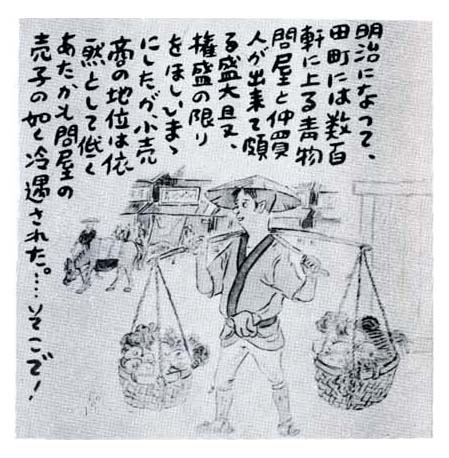 明治になって、
田町には数百
軒に上る青物
問屋と仲買
人が出来て頗
る盛大且又、
権盛の限り
をほしいまゝ
にしたが、小売
商の地位は依
然として低く
あたかも問屋の
売子の如く冷遇された。……そこで!